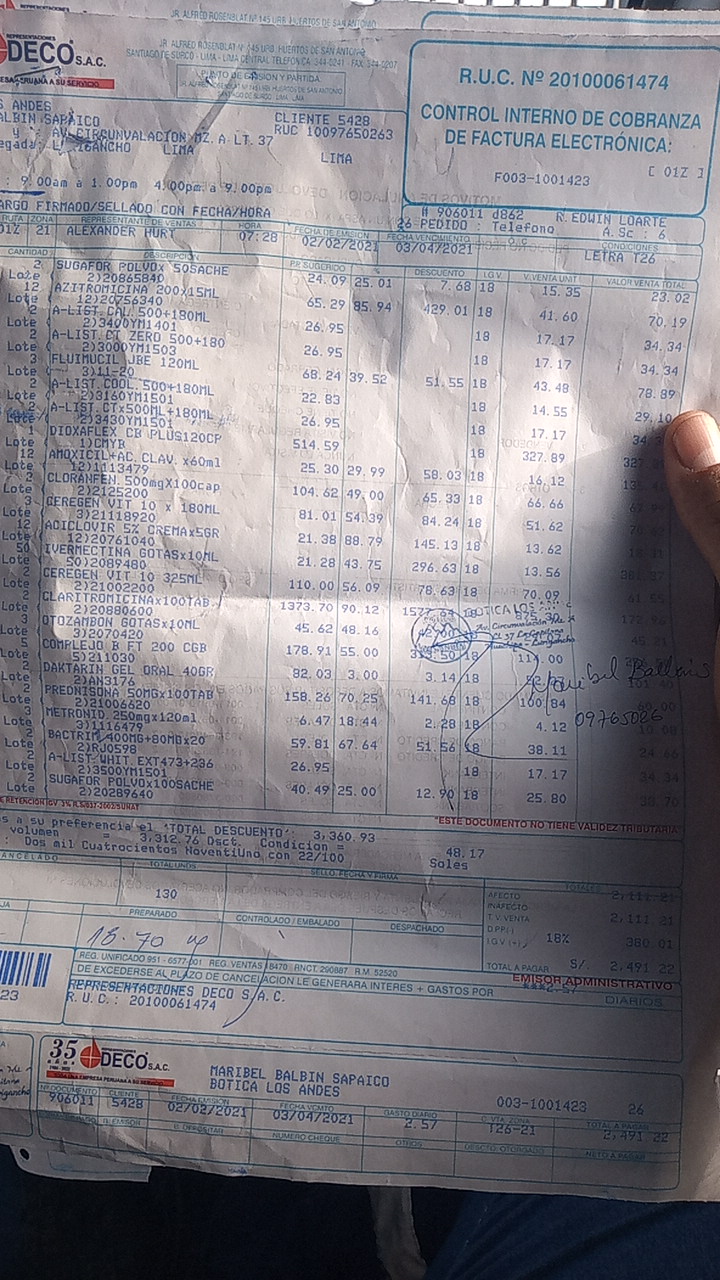 JR. ALFRED ROSENBLAT Nº 145 URB. HUERTOS DE SAN ANTONIO
REPRESENTACIONES
DECO S.A.C.
ESA PERUANA A SU SERVICIO
JR. ALFREDO ROSENBLAT Nº 145 URB. HUERTOS DE SAN ANTONIO
SANTIAGO DE SURCO - LIMA - LIMA CENTRAL TELEFONICA
PUNTO DE EMISION Y PARTIDA
R.U.C. Nº 20100061474
CONTROL INTERNO DE COBRANZA
DE FACTURA ELECTRÓNICA:
F003-1001423
[ 01Z ]
S ANDES
ALBIN SAPAICO
CLIENTE 5428
RUC 10097650263
AV. CIRCUNVALACION MZ.A LT.37
LIMA
LIMA
: 9.00am a 1.00pm 4.00pm a 9.00pm
ARGO FIRMADO/SELLADO CON FECHA/HORA
# 906011 d862 R.EDWIN LOARTE
26 PEDIDO : Telefono A.Sc : 6
RUTA ZONA REPRESENTANTE DE VENTAS HORA FECHA DE EMISION FECHA VENCIMIENTO CONDICIONES
01Z 21 ALEXANDER HURT 07:28 02/02/2021 03/04/2021 LETRA T26
CANTIDAD DESCRIPCION P.P. SUGERIDO % DESCUENTO I.G.V. V.VENTA UNIT VALOR VENTA TOTAL
2 SUGAFOR POLVOx 50SACHE 24.09 25.01 7.68 18 15.35 23.02
Lote 2)20865840
12 AZITROMICINA 200x15ML 65.29 85.94 429.01 18 41.60 70.19
Lote 12)20756340
2 A-LIST.CAL.500+180ML 26.95 18 17.17 34.34
Lote 2)3400YM1401
2 A-LIST.CT ZERO 500+180 26.95 18 17.17 34.34
Lote 2)3000YM1503
3 FLUIMUCIL JBE 120ML 68.24 39.52 51.55 18 43.48 78.89
Lote 3)11-20
2 A-LIST.COOL.500+180ML 22.83 18 14.55 29.10
Lote 2)3160YM1501
2 A-LIST.CTx500ML+180ML 26.95 18 17.17
2)3430YM1501
DIOXAFLEX CB PLUS120CP 514.59 18 327.89
Lote 1)CMYB
12 AMOXICIL+AC.CLAV. x60ml 25.30 29.99 58.03 18 16.12
Lote 12)1113479
2 CLORANFEN.500mgX100cap 104.62 49.00 65.33 18 66.66
Lote 2)2125200
3 CEREGEN VIT 10 x 180ML 81.01 54.39 84.24 18 51.62
Lote 3)2118920
12 ACICLOVIR 5% CREMAx5GR 21.38 88.79 145.13 18 13.62
Lote 12)20761040
50 IVERMECTINA GOTASx10ML 21.28 43.75 296.63 18 13.56
Lote 50)2089480
2 CEREGEN VIT 10 325ML 110.00 56.09 78.63 18 70.09
Lote 2)21002200
2 CLARITROMICINAx100TAB. 1373.70 90.12 18
Lote 2)20880600
3 OTOZAMBON GOTASx10ML 45.62 48.16 18
Lote 3)2070420
5 COMPLEJO B FT 200 CGB 178.91 55.00 18 114.00
Lote 5)211030
2 DAKTARIN GEL ORAL 40GR 82.03 3.00 3.14 18
Lote 2)AN3176
2 PREDNISONA 50MGx100TAB 158.26 70.25 141.68 18 100.84
Lote 2)21006620
3 METRONID.250mgx120ml 6.47 18.44 2.28 18 4.12
Lote 3)1116479
2 BACTRIM 400MG+80MGx20 59.81 67.64 51.56 18 38.11 24.66
Lote 2)RJ0598
2 A-LIST.WHIT.EXT473+236 26.95 18 17.17 34.34
Lote 2)3500YM1501
2 SUGAFOR POLVOx100SACHE 40.49 25.00 12.90 18 25.80 38.70
Lote 2)20289640
BOTICA LOS
Maribel Balbin S
09765026
"ESTE DOCUMENTO NO TIENE VALIDEZ TRIBUTARIA"
s a su preferencia el 'TOTAL DESCUENTO': 3,360.93
volumen = 3,312.76 Dsct. Condicion = 48.17
: Dos mil Cuatrocientos NoventiUno con 22/100 Soles
CANCELADO TOTAL UNDS SELLO, FECHA Y FIRMA TOTALES
130
AFECTO 2,111.21
INAFECTO
T.V. VENTA 2,111.21
D.P.P.(-)
I.G.V (+) 18% 380.01
TOTAL A PAGAR S/. 2,491.22
PREPARADO CONTROLADO / EMBALADO DESPACHADO
REG. UNIFICADO 951 - 6577-001 REG. VENTAS 8470 RNCT. 290887 R.M. 52520
DE EXCEDERSE AL PLAZO DE CANCELACION LE GENERARA INTERES + GASTOS POR ***2.57 DIARIOS
EMISOR ADMINISTRATIVO
REPRESENTACIONES DECO S.A.C.
R.U.C.: 20100061474
23
35 años
DECO S.A.C.
UNA EMPRESA PERUANA A SU SERVICIO
MARIBEL BALBIN SAPAICO
BOTICA LOS ANDES
003-1001423 26
Nº DOCUMENTO CLIENTE FECHA EMISION FECHA VCMTO GASTO DIARIO C. VTA. ZONA TOTAL A PAGAR
906011 5428 02/02/2021 03/04/2021 2.57 T26-21 2,491.22
B. EMISOR B. DEPOSITAR NUMERO CHEQUE OTROS DSCTO. OTORGADO NETO A PAGAR